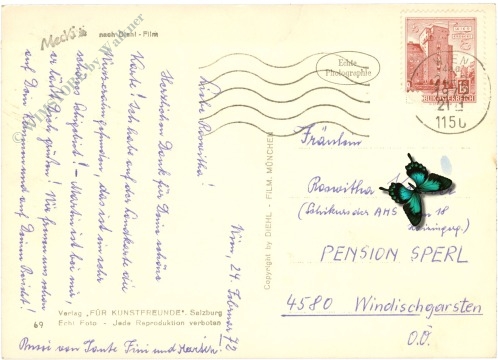 Mecki
nach Diehl-Film
Echte
Photographie
REPUBLIK ÖSTERREICH
WIEN
21
1150
Wien, 24. Februar 72
Liebe Roswitha!
Herzlichen Dank für Deine schöne
Karte! Ich habe auf der Landkarte die
gefunden, das ist ein sehr
schönes Skigebiet! - Martin ist bei mir,
er läßt Dich grüßen! Wir freuen uns schon
auf Dein Kommen und auf Deinen Bericht!
Bussi von Tante Fini und Martin.
Verlag „FÜR KUNSTFREUNDE", Salzburg
Echt Foto - Jede Reproduktion verboten
69
Copyright by DIEHL - FILM, MÜNCHEN
Fräulein
Roswitha
(Schikurs der AHS 18
PENSION SPERL
4580 Windischgarsten
O.Ö.